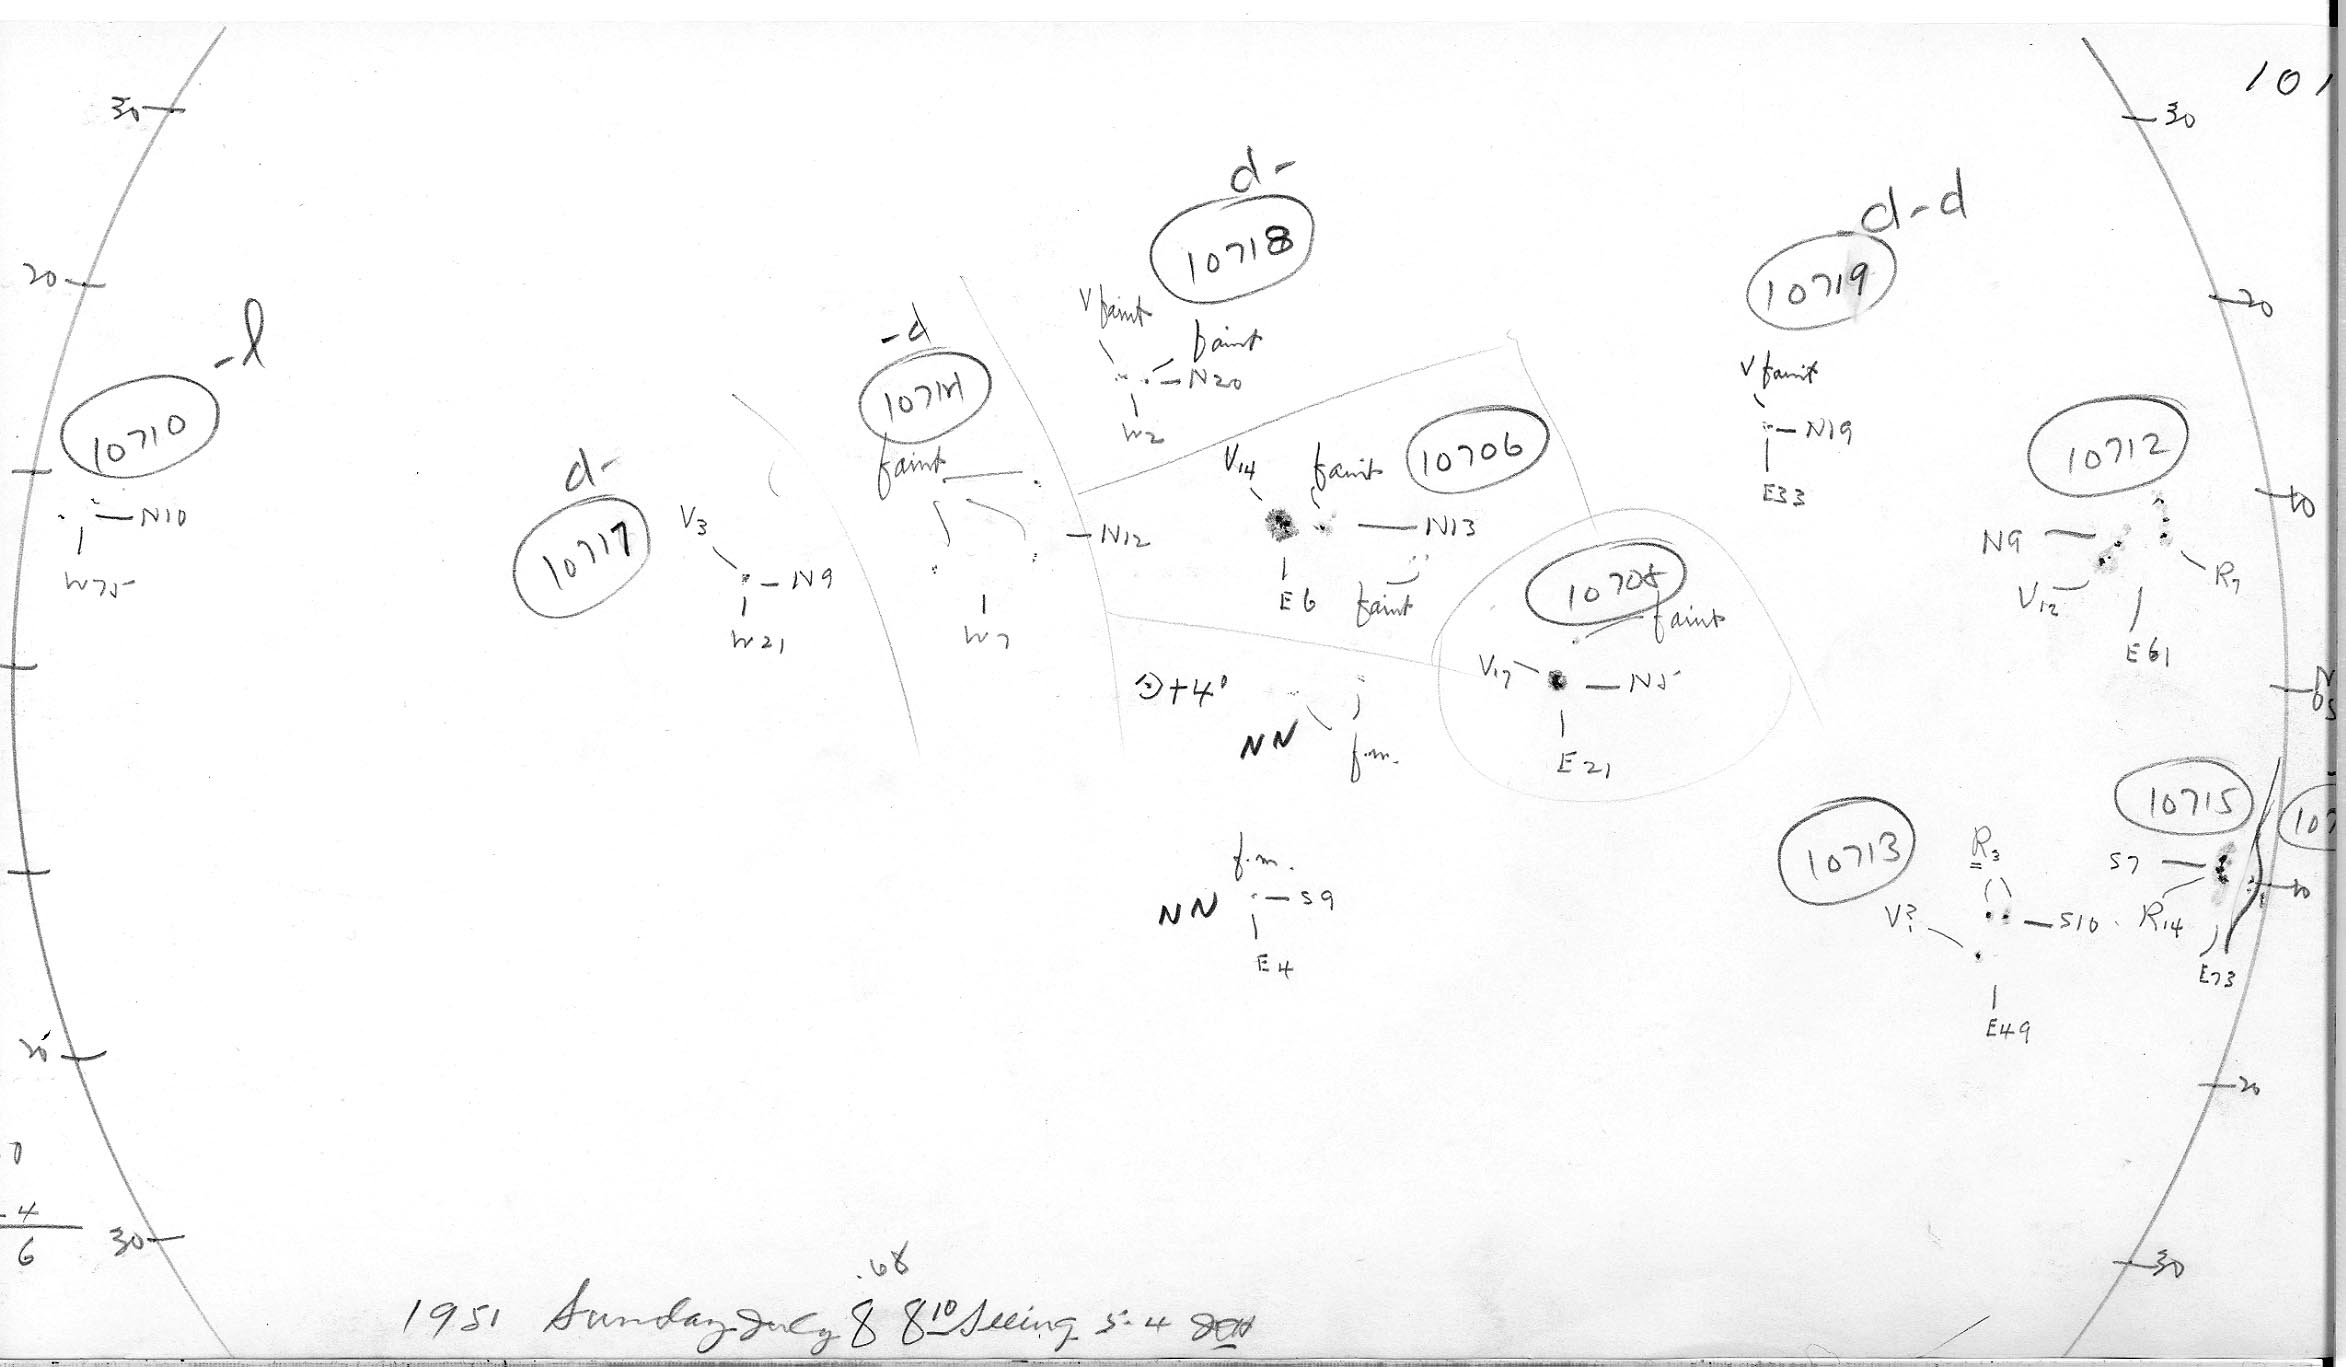 30
30
101
d-
-d-d
10718
20
10719
20
-l
V faint
faint
-d
N20
W2
V faint
N19
E33
10710
N10
W75
d-
10717
V3
N9
W21
10714
faint
N12
W7
V14
faint
10706
N13
faint
E6
10712
N9
V12
R7
E61
10
10705
faint
V17
N5
E21
+4'
NN
f.m.
N
0
S
f.m.
NN
S9
E4
10713
R3
V?
S10
E49
10715
S7
R14
E73
10
107
20
20
0
4
6
30
30
.68
1951 Sunday July 8 8 10 Seeing 5-4